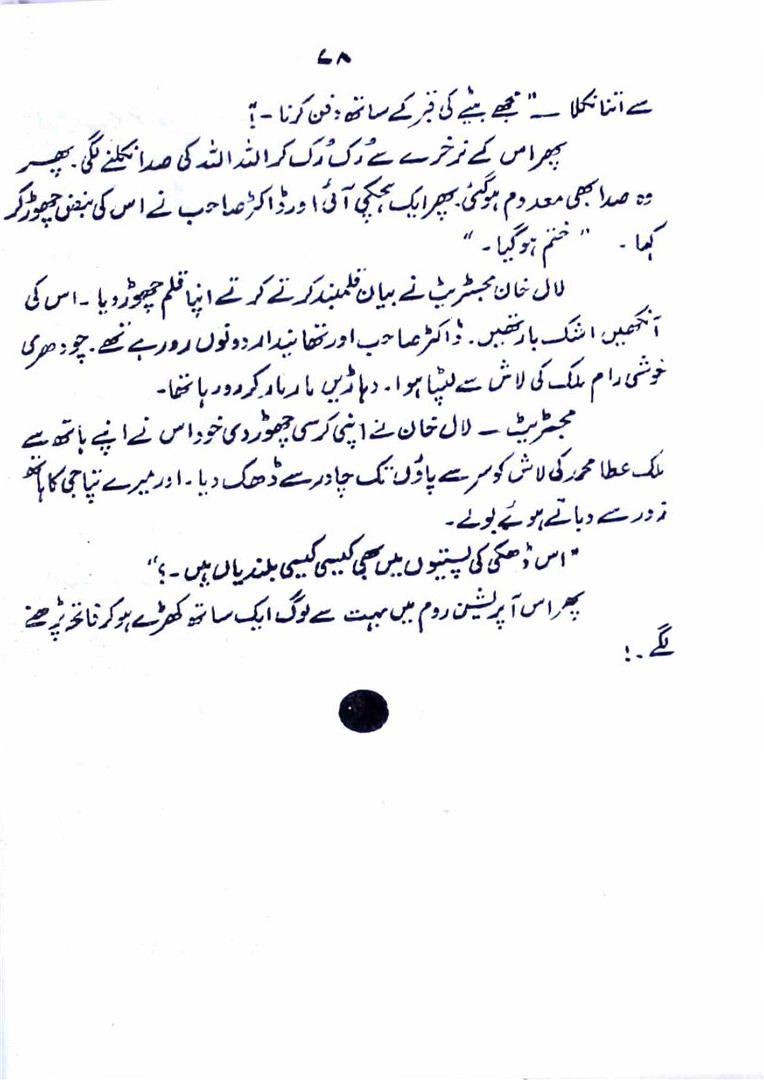 ۶۸
سے اتنا نکلا ــ "مجھے بیٹے کی قبر کے ساتھ دفن کرنا -"؟
پھر اس کے نرخرے سے رُک رُک کر اللہ اللہ کی صدا نکلنے لگی. پھر
وہ صدا بھی معدوم ہوگئی. پھر ایک ہچکی آئی اور ڈاکٹر صاحب نے اس کی نبض چھوڑ کر
کہا - "ختم ہو گیا -"
لال خان مجسٹریٹ نے بیان قلمبند کرتے کرتے اپنا قلم چھوڑ دیا - اس کی
آنکھیں اشک بار تھیں. ڈاکٹر صاحب اور تھانیدار دونوں رو رہے تھے. چودھری
خوشی رام ملک کی لاش سے لپٹا ہوا. دہاڑیں مار مار کر رو رہا تھا -
مجسٹریٹ ــ لال خان نے اپنی کرسی چھوڑ دی خود اس نے اپنے ہاتھ سے
ملک عطا محمد کی لاش کو سر سے پاؤں تک چادر سے ڈھک دیا - اور میرے پتا جی کا ہاتھ
زور سے دباتے ہوئے بولے -
"اس ڈھکی کی پستیوں میں بھی کیسی کیسی بلندیاں ہیں -؟"
پھر اس آپریشن روم میں بہت سے لوگ ایک ساتھ کھڑے ہو کر فاتحہ پڑھنے
لگے -!